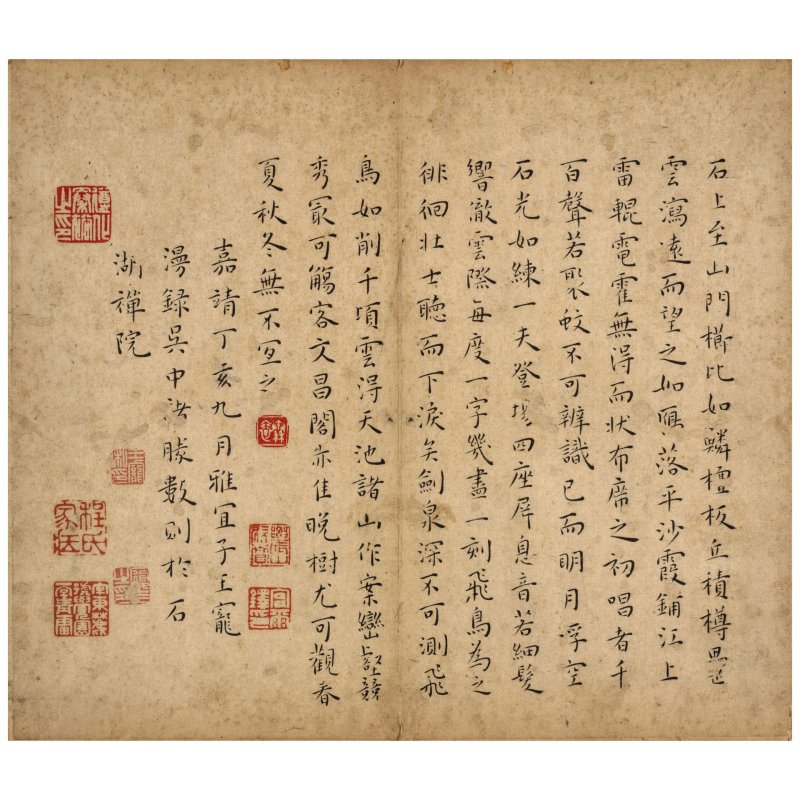 石上至山門櫛比如鱗檀板丘積樽罍
雲瀉遠而望之如鴈落平沙霞鋪江上
雷輥電霍無得而狀布席之初唱者千
百聲若聚蚊不可辨識已而明月浮空
石光如練一夫登場四座屏息音若細髮
響徹雲際每度一字幾盡一刻飛鳥為之
徘徊壯士聽而下淚矣劍泉深不可測飛
鳥如削千頃雲得天池諸山作案巒壑競
秀冣可觴客文昌閣亦佳晚樹尤可觀春
夏秋冬無不宜之
嘉靖丁亥九月雅宜子王寵
漫錄吳中諸勝數則於石
湖禪院
程氏家廷